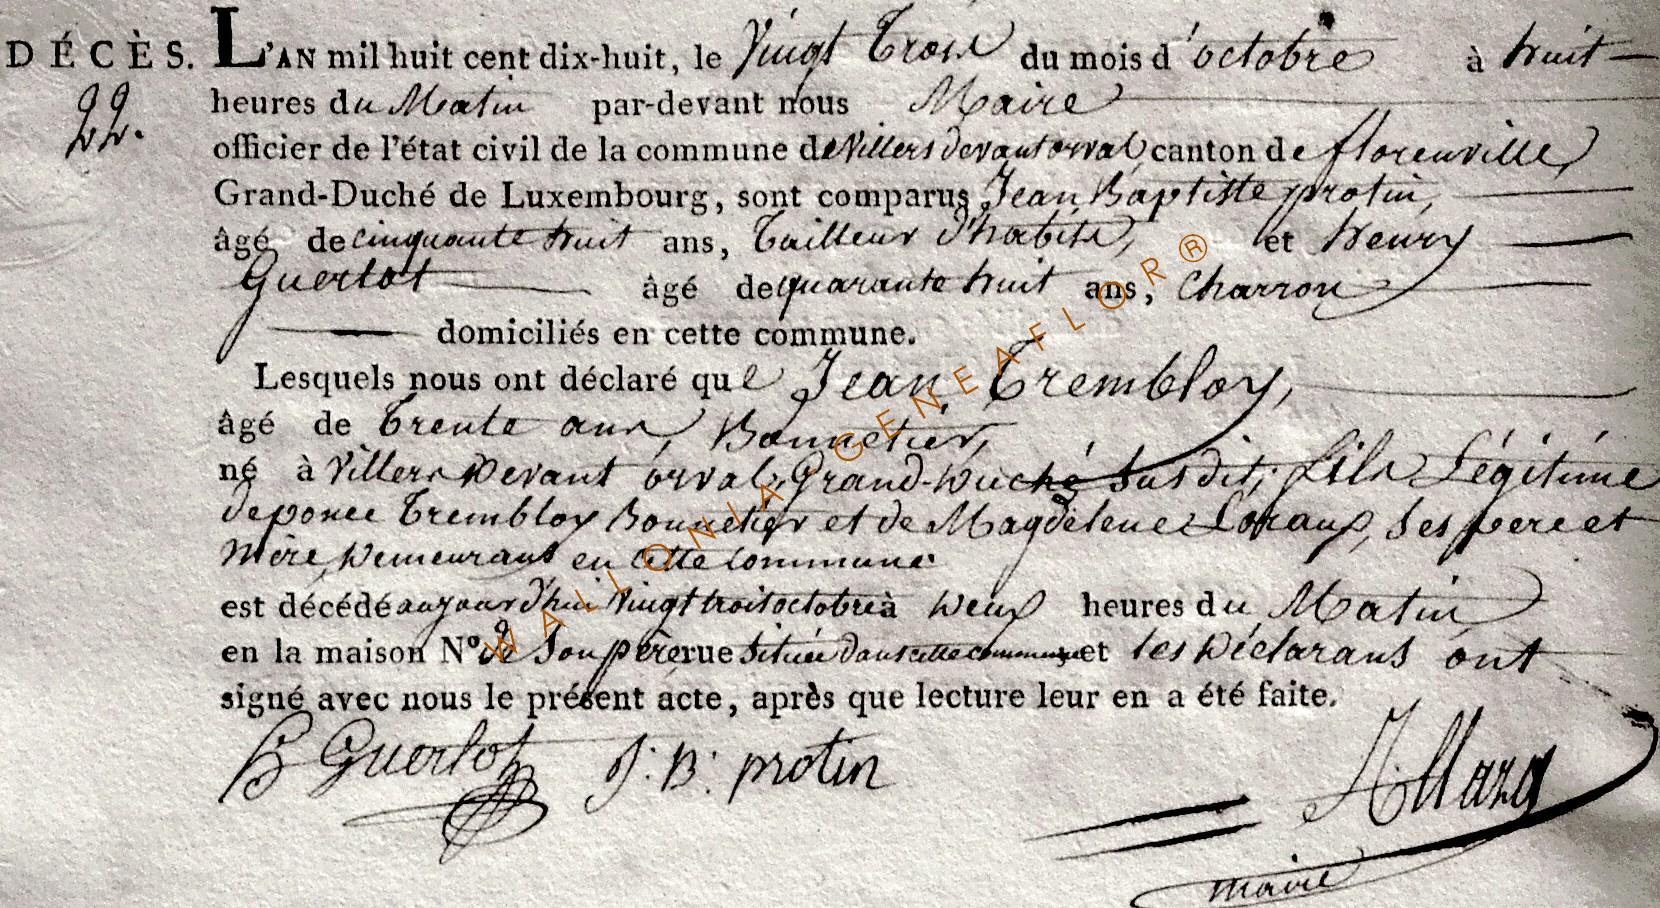 DÉCÈS. L'AN mil huit cent dix-huit, le Vingt Trois du mois d'octobre à huit
22. heures du Matin par-devant nous Maire
officier de l'état civil de la commune de Villers devant orval canton de florenville
Grand-Duché de Luxembourg, sont comparus Jean Baptiste protin,
âgé de cinquante huit ans, Tailleur d'habits, et henry
Guerlot âgé de quarante huit ans, Charron
domiciliés en cette commune.
Lesquels nous ont déclaré que Jean Trembloy,
âgé de Trente ans, Bonnetier,
né à Villers Devant orval, Grand-Duché Susdit, fils Légitime
de poncé Trembloy Bonnetier et de Magdelene Loraux, Ses pere et
Mère, Demeurans en cette commune.
est décédé aujourd'hui Vingt trois octobre à Deux heures du Matin
en la maison N° de Son père rue Située dans cette commune et les Déclarans ont
signé avec nous le présent acte, après que lecture leur en a été faite.
H Guerlot J: B: protin
maire
WALLONIA GENEAFLOR®